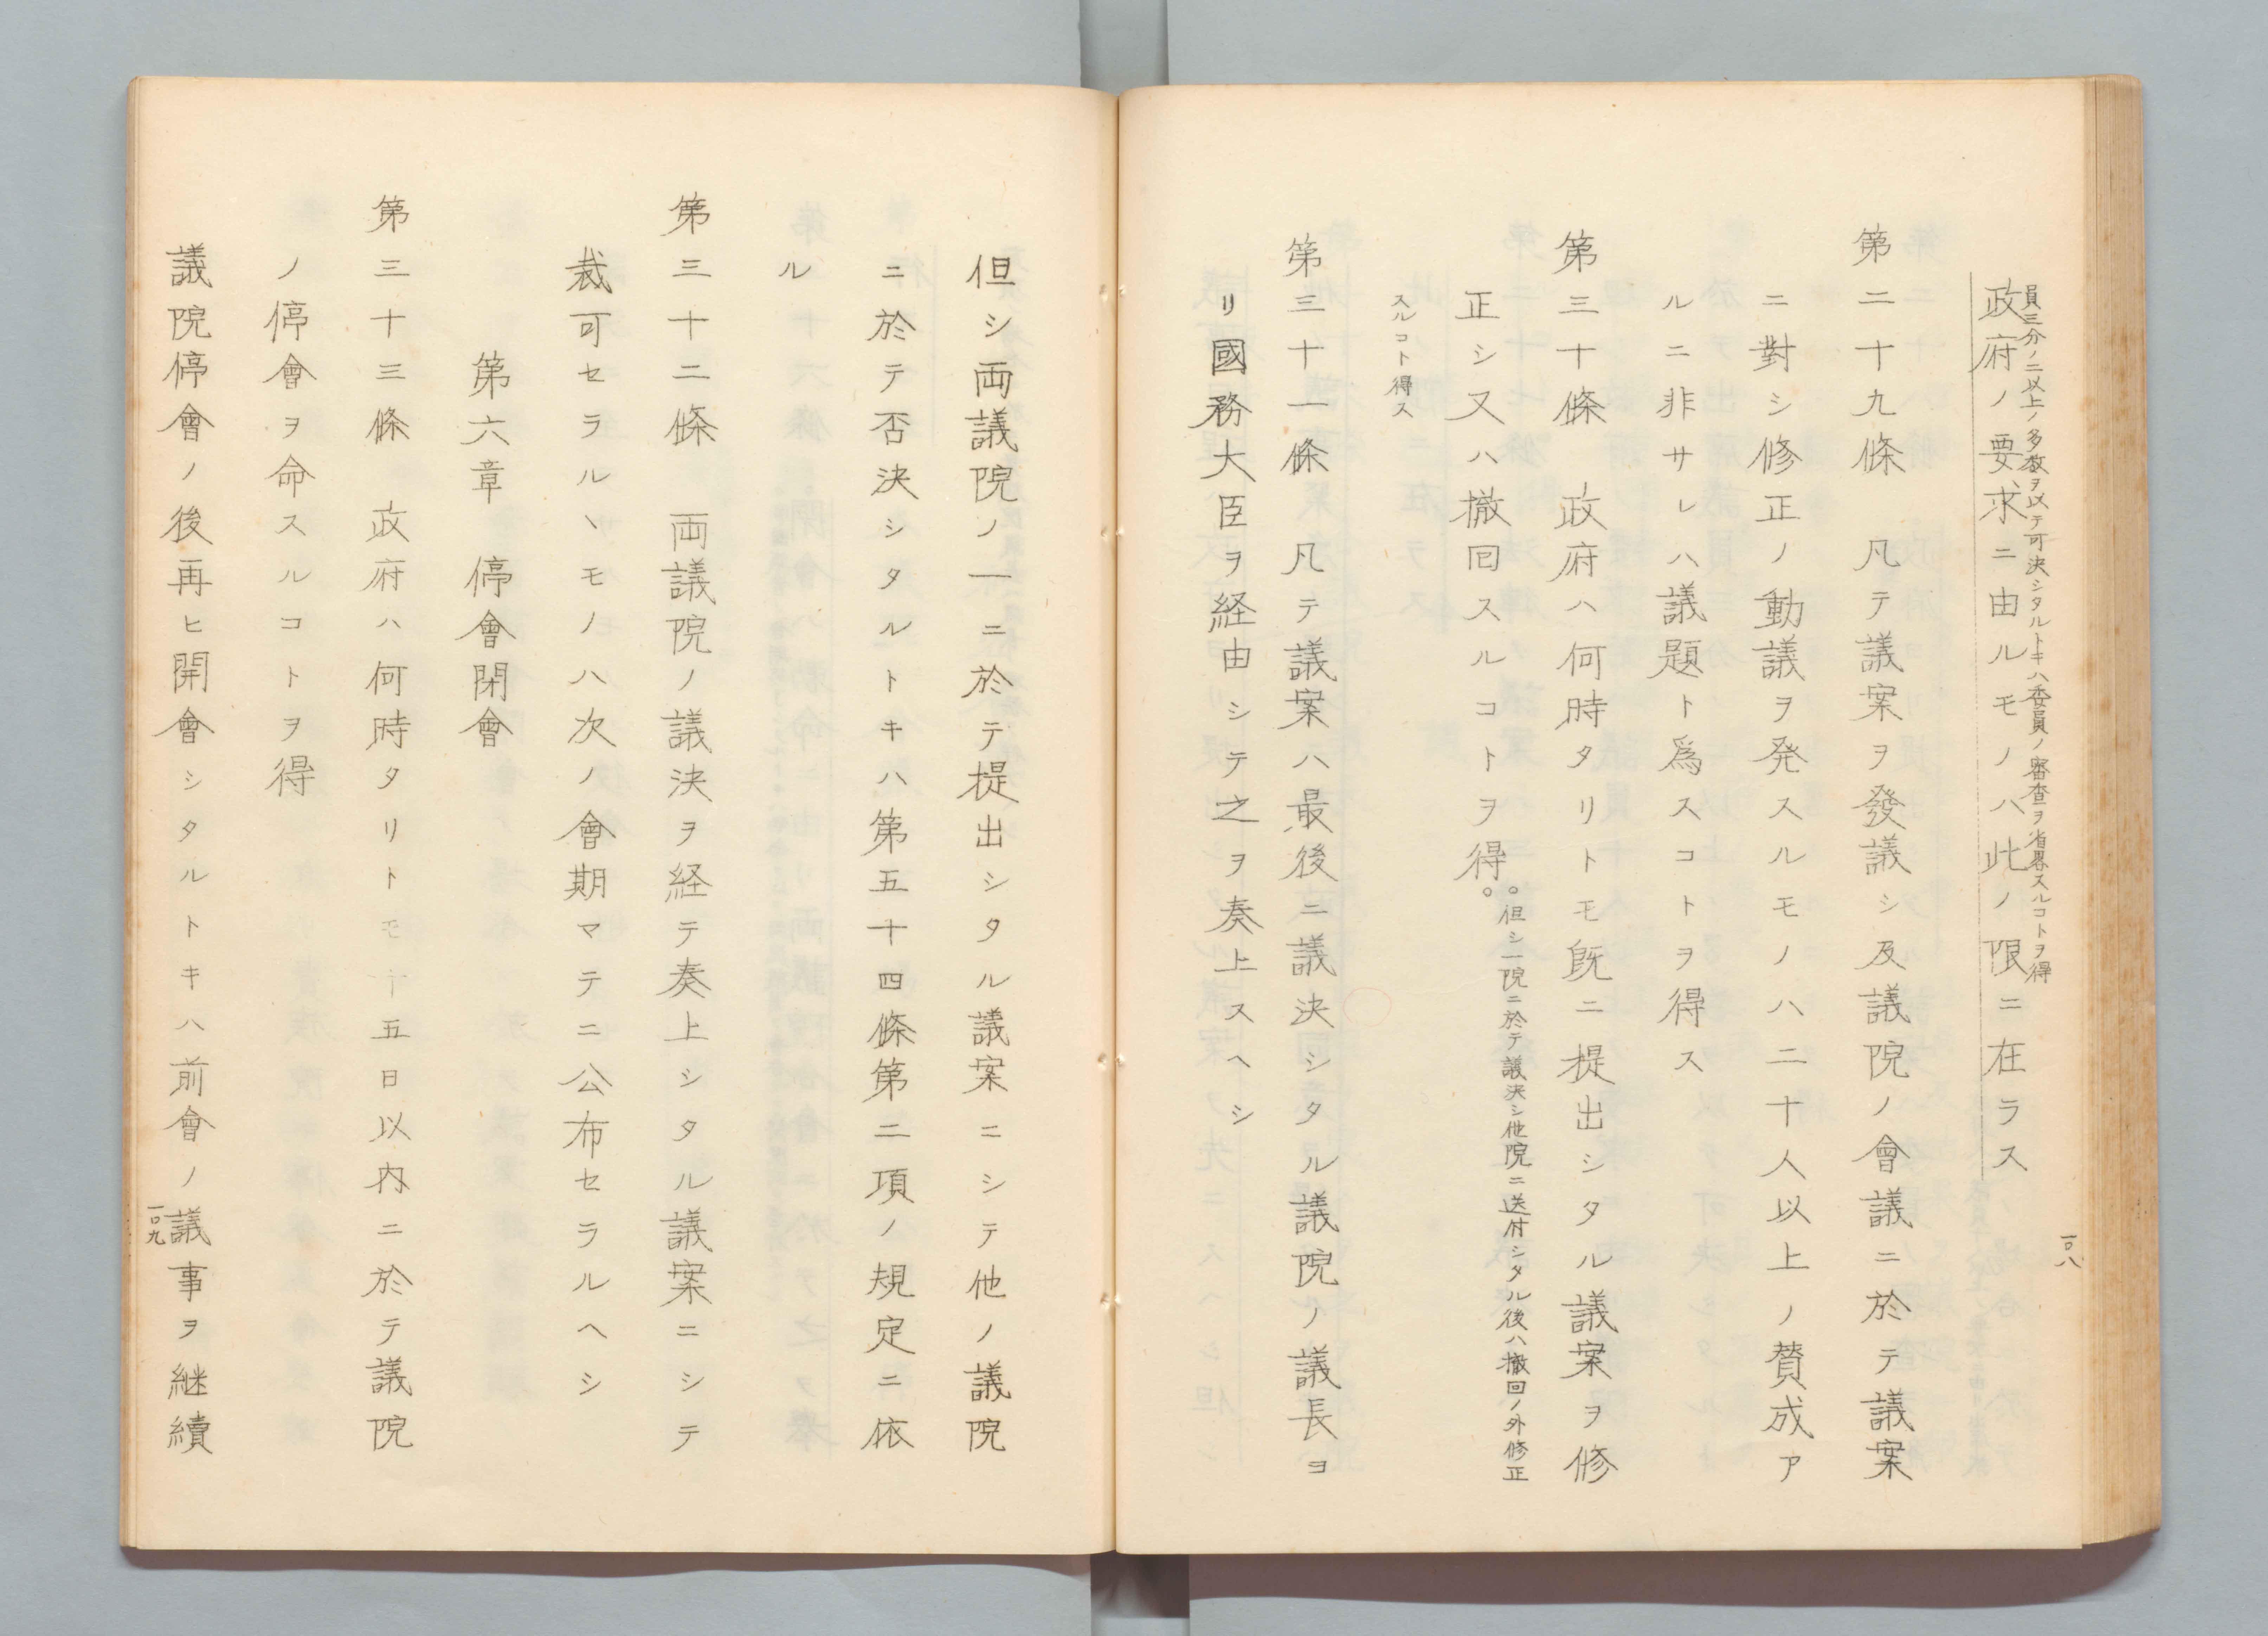 一〇八
員三分ノ二以上ノ多数ヲ以テ可決シタルトキハ委員ノ審査ヲ省畧スルコトヲ得
政府ノ要求ニ由ルモノハ此ノ限ニ在ラス
第二十九條　凡テ議案ヲ發議シ及議院ノ會議ニ於テ議案
ニ對シ修正ノ動議ヲ発スルモノハ二十人以上ノ賛成ア
ルニ非サレハ議題ト爲スコトヲ得ス
第三十條　政府ハ何時タリトモ既ニ提出シタル議案ヲ修
正シ又ハ撤回スルコトヲ得。
。但シ一院ニ於テ議決シ他院ニ送付シタル後ハ撤回ノ外修正
スルコト得ス
第三十一條　凡テ議案ハ最後ニ議決シタル議院ノ議長ヨ
リ國務大臣ヲ経由シテ之ヲ奏上スヘシ
但シ両議院ノ一ニ於テ提出シタル議案ニシテ他ノ議院
ニ於テ否決シタルトキハ第五十四條第二項ノ規定ニ依
ル
第三十二條　両議院ノ議決ヲ経テ奏上シタル議案ニシテ
裁可セラルヽモノハ次ノ會期マテニ公布セラルヘシ
第六章　停會閉會
第三十三條　政府ハ何時タリトモ十五日以内ニ於テ議院
ノ停會ヲ命スルコトヲ得
議院停會ノ後再ヒ開會シタルトキハ前會ノ議事ヲ継續
一〇九